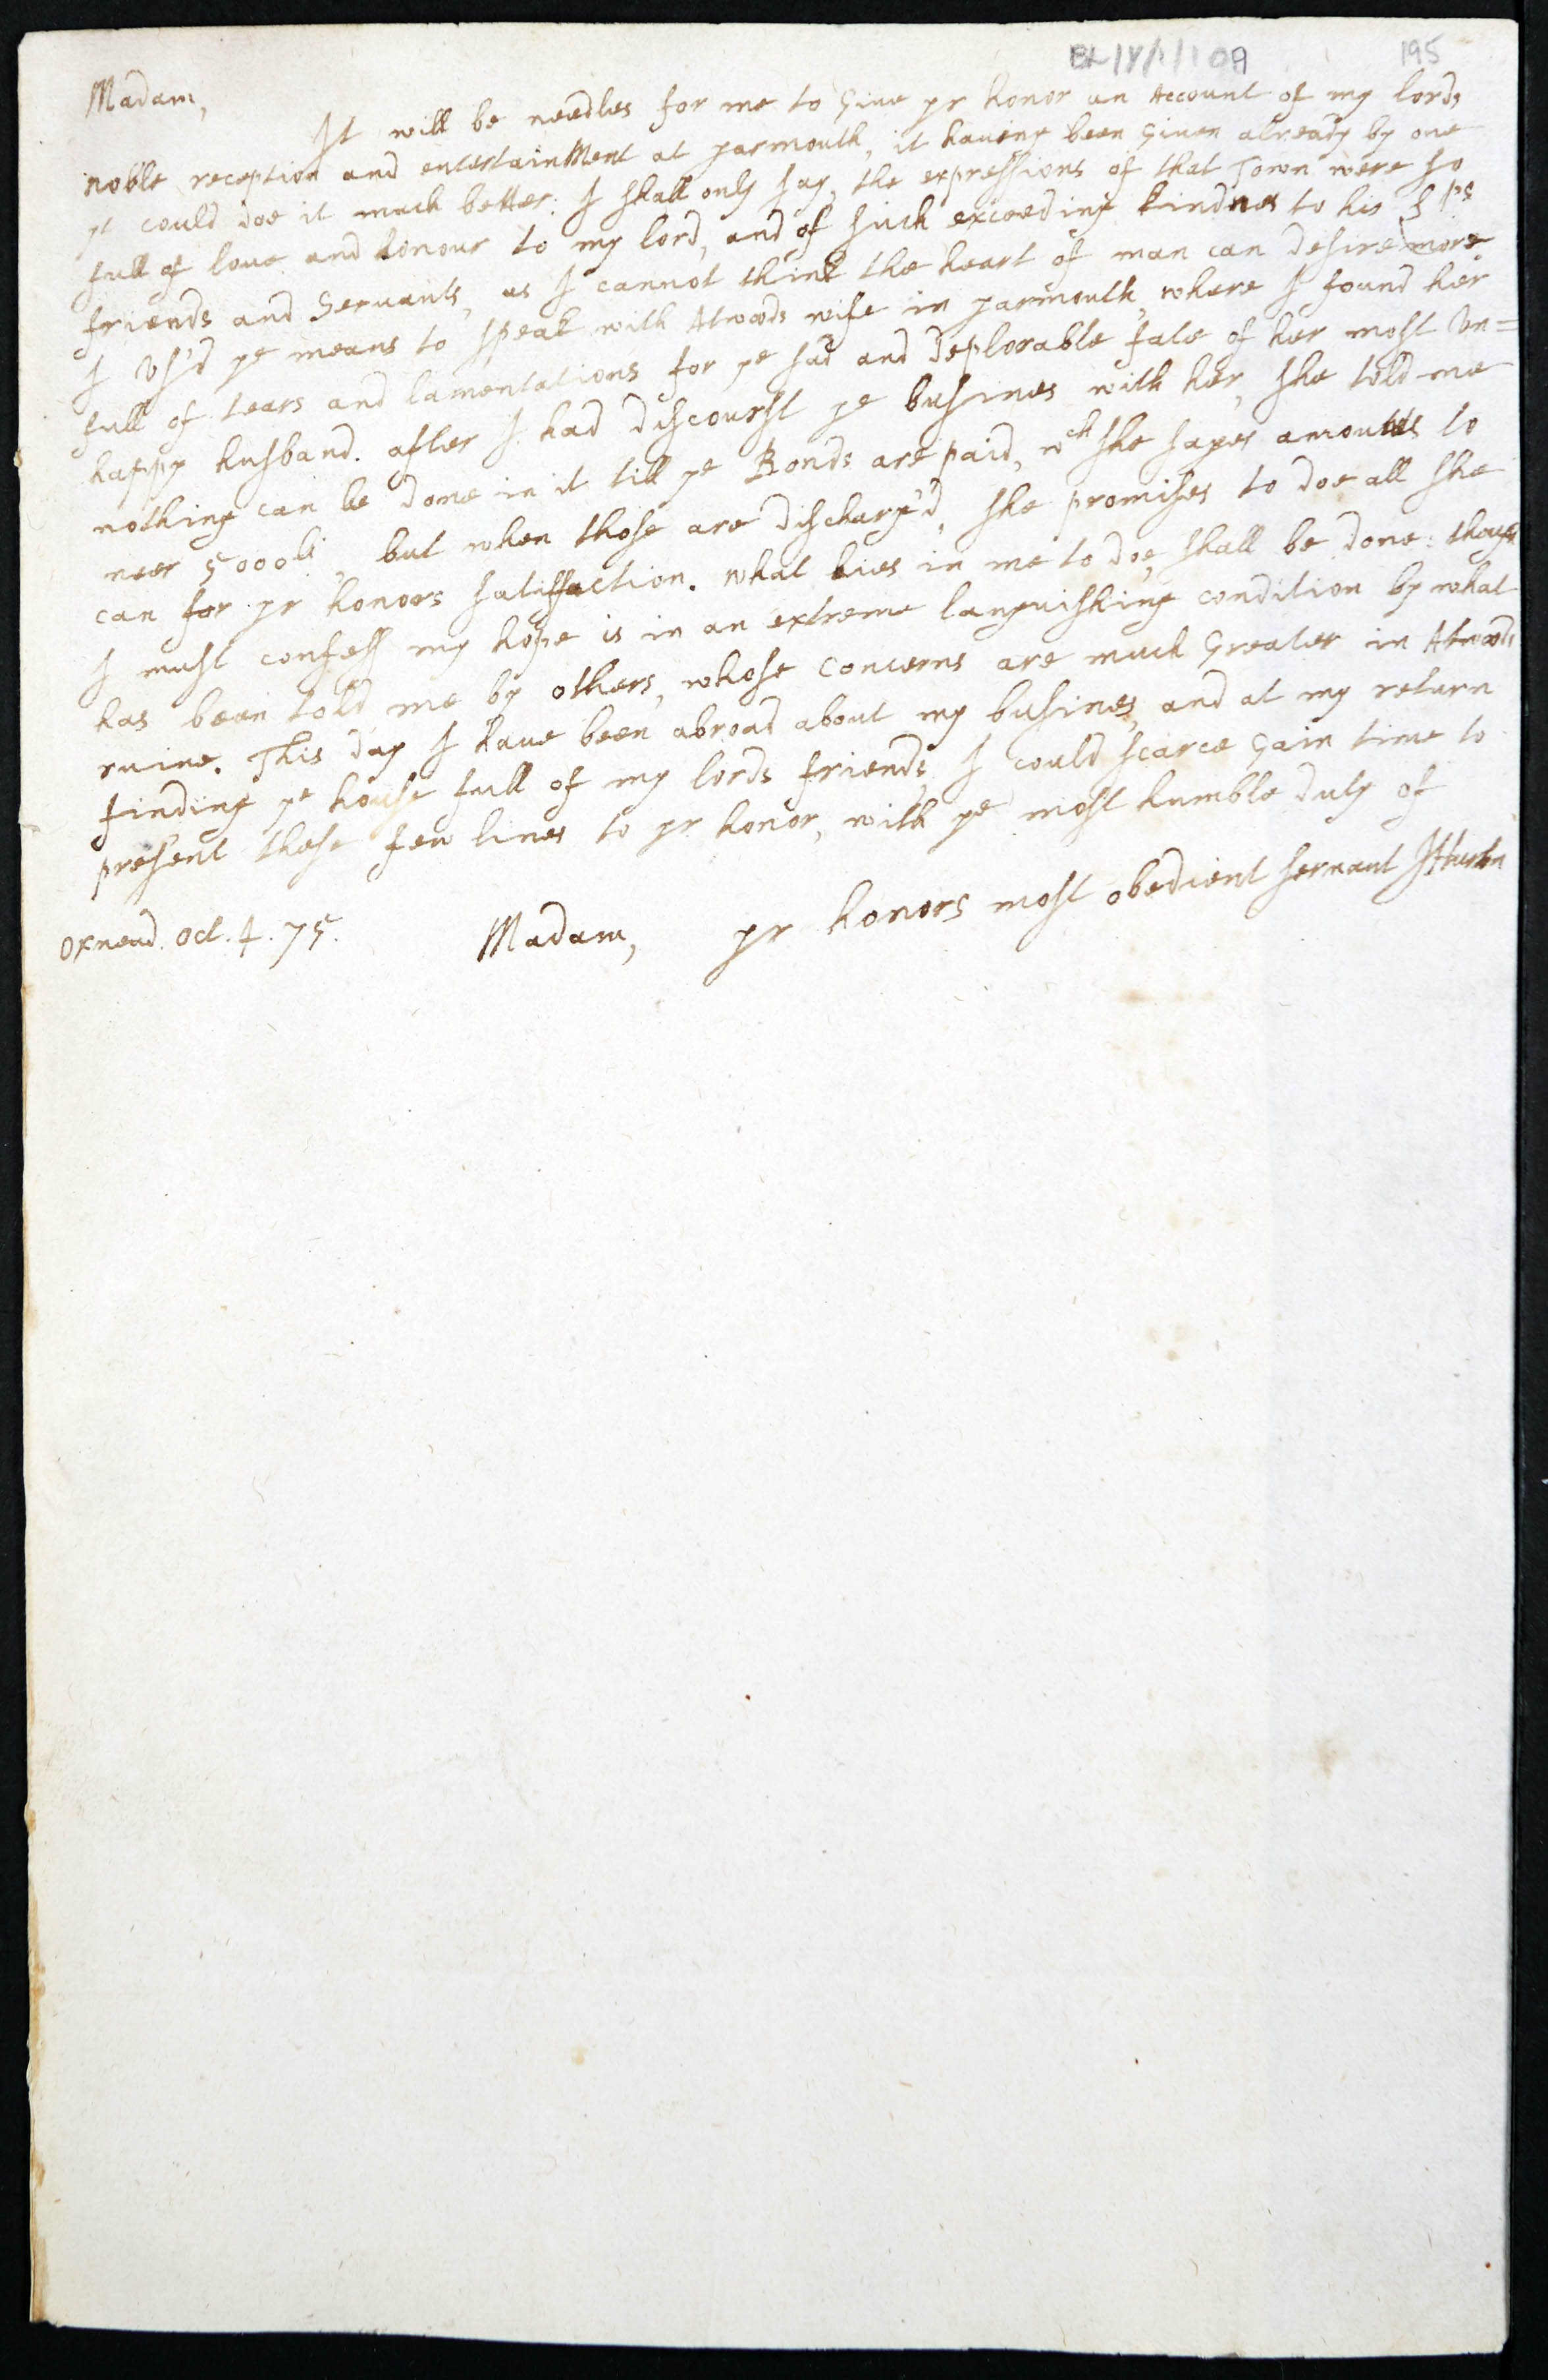 BL/Y/1/108 195
Madam,
It will be needles for me to Giue yr honor an Account of my lords
noble reception and entertainMent at yarmouth, it haueing been Giuen already by one
yt could doe it much better: I shall only say, the expressions of that Town were so
full of loue and honour to my lord, and of such exceeding kindnes to his Lps
friends and Seruants, as I cannot think the heart of man can desire more
I Us'd ye means to speak with Atwoods wife in yarmouth, where I found her
full of tears and lamentations for ye sad and Deplorable fate of her most Un=
happy husband. after I had discourst ye busines with her, she told me
nothing can be done in it till ye Bonds are paid, wch she sayes amounts to
neer 5000li, but when those are discharg'd, she promises to doe all she
can for yr honors satisffaction. what lies in me to doe, shall be done: though
I must confess my hope is in an extreme languishing condition by what
has been told me by others, whose concerns are much Greater in Atwoods
ruine. This day I haue been abroad about my busines, and at my return
finding ye house full of my lords friends, I could scarce Gain time to
present these few lines to yr honor, with ye most humble duty of
Madam, yr honors most obedient seruant JHurton
Oxnead. Oct. 4. 75.